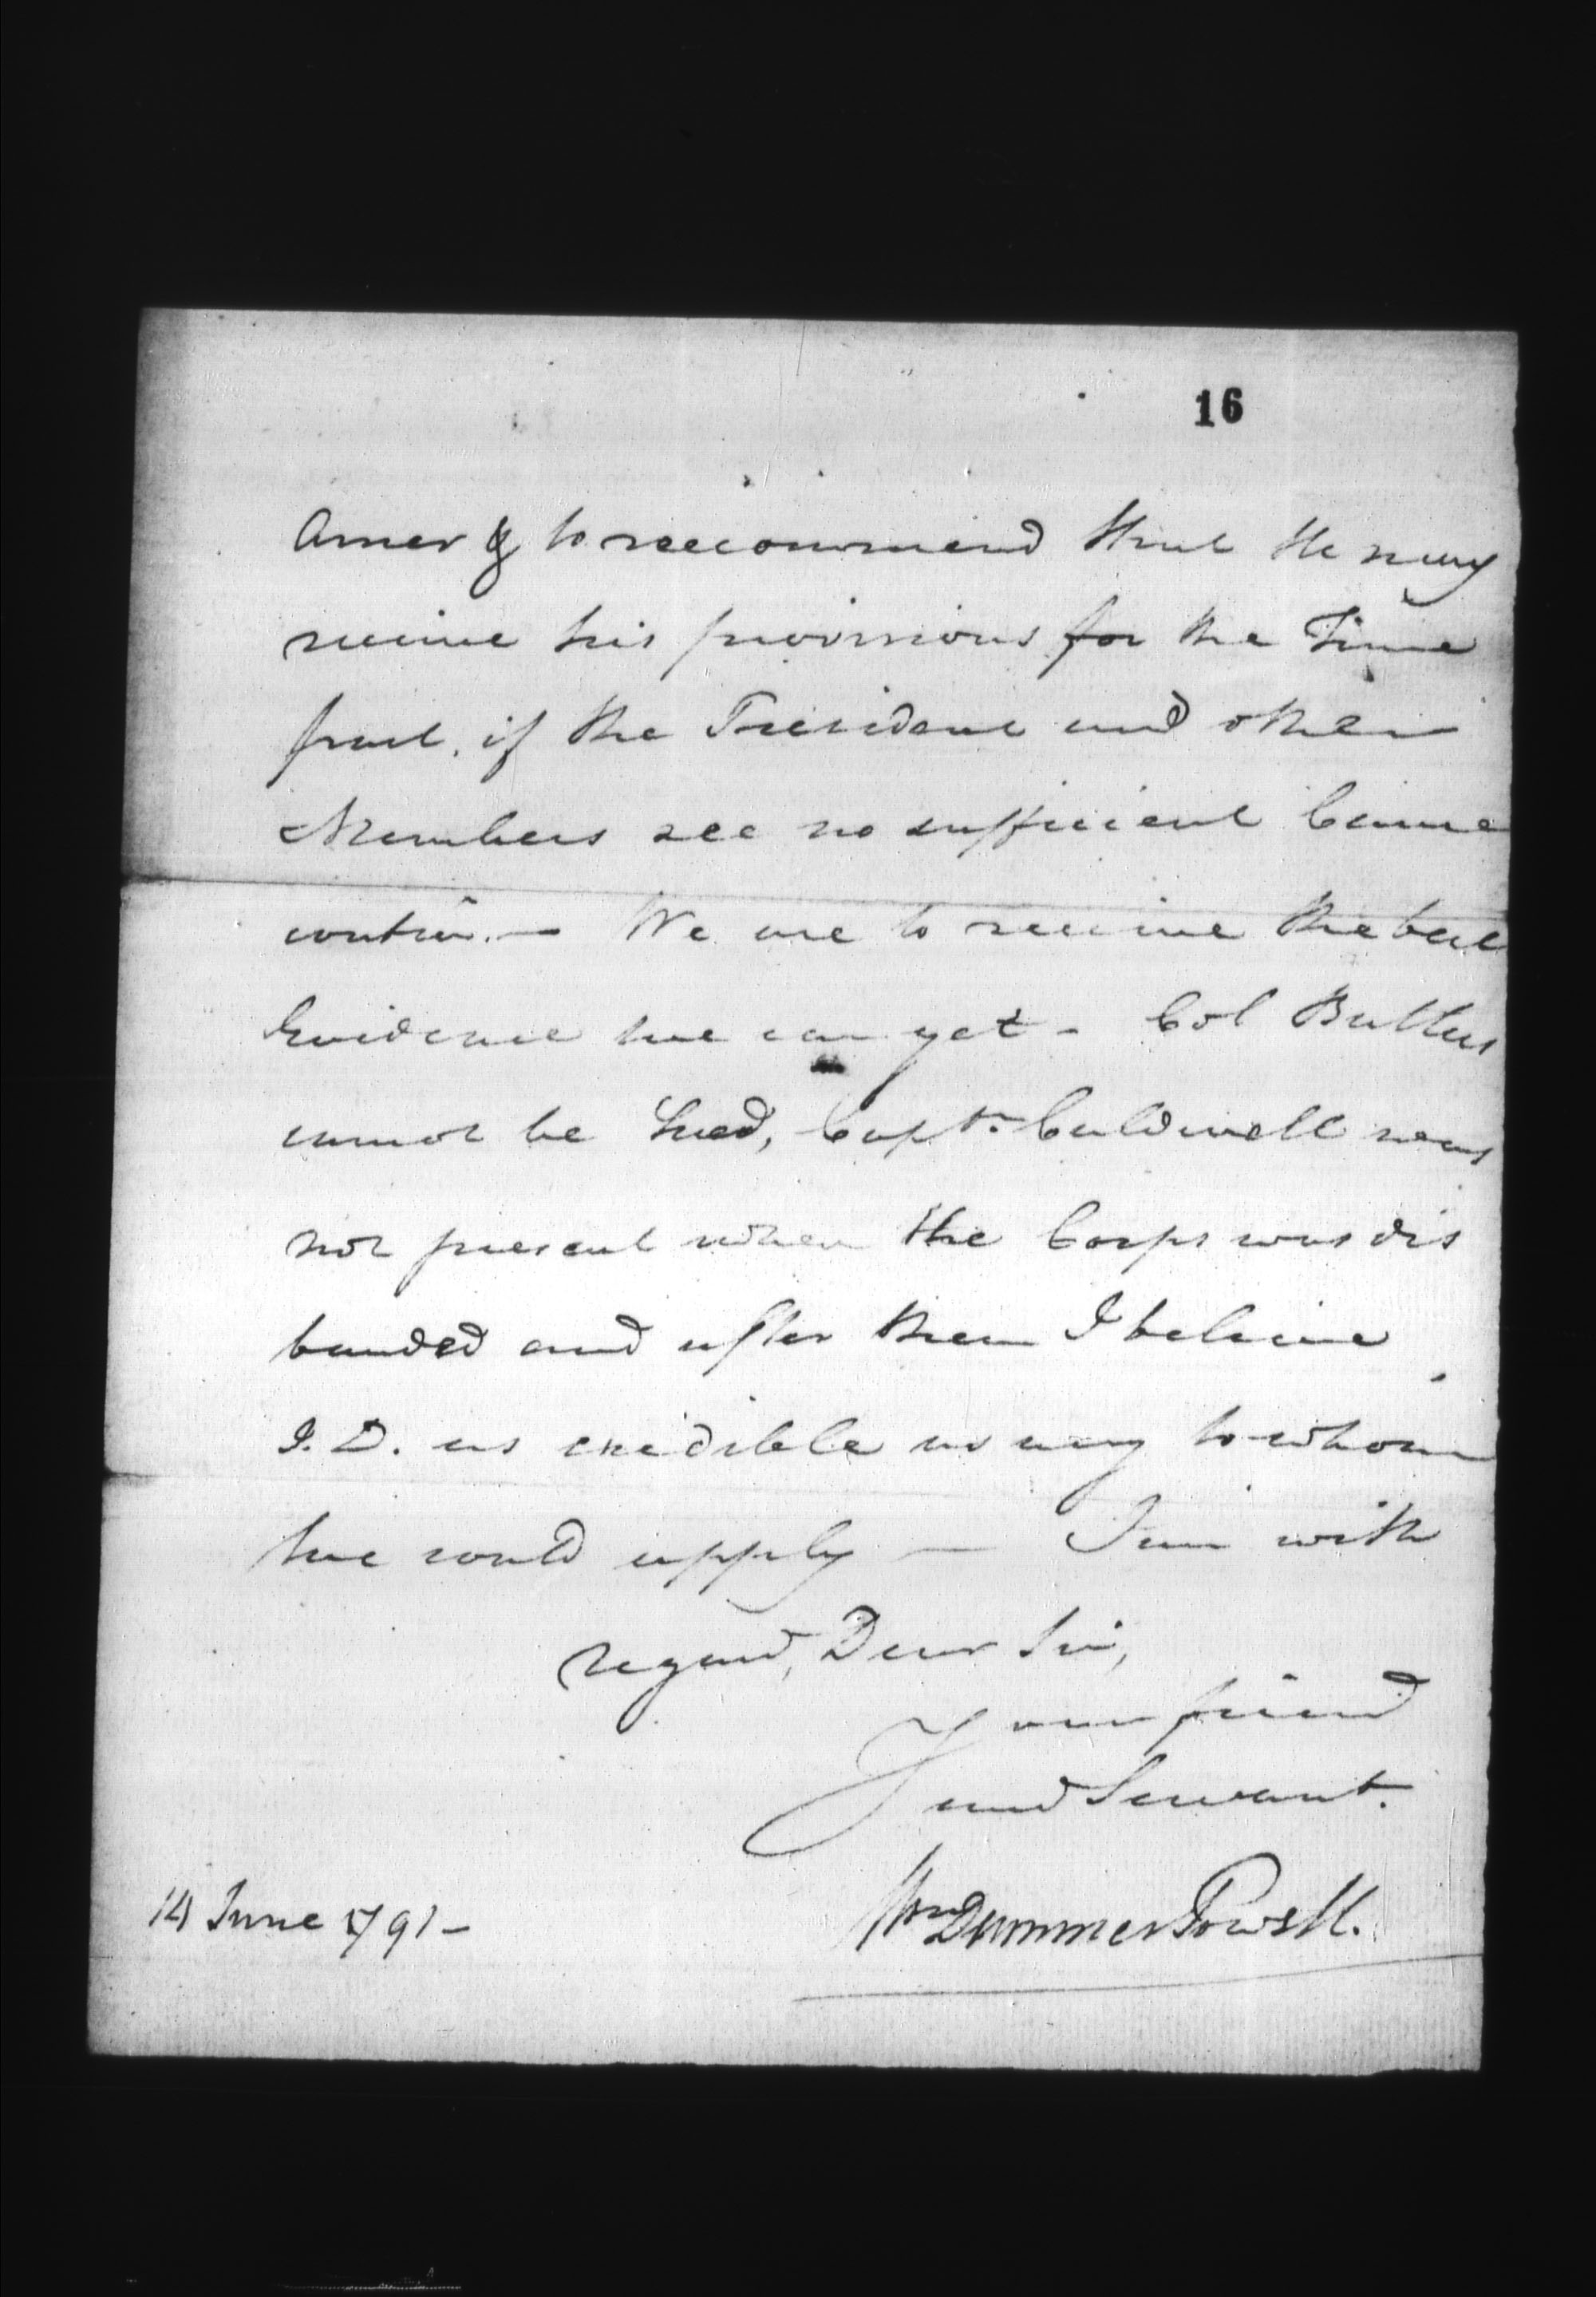 16
Amer & to reccommend that He may
receive his provisions for the Time
past, if the President and other
Members see no sufficient Cause
contra. — We are to receive the best
Evidence we can get - Col Butlers
cannot be had, Capt. Caldwell was
not present when the Corps was dis
banded and after them I believe
J. D. as credible as any to whom
we could apply — I am with
regard, Dear Sir,
Your friend
and Servant.
Wm Dummer Powell.
14 June 1791 -